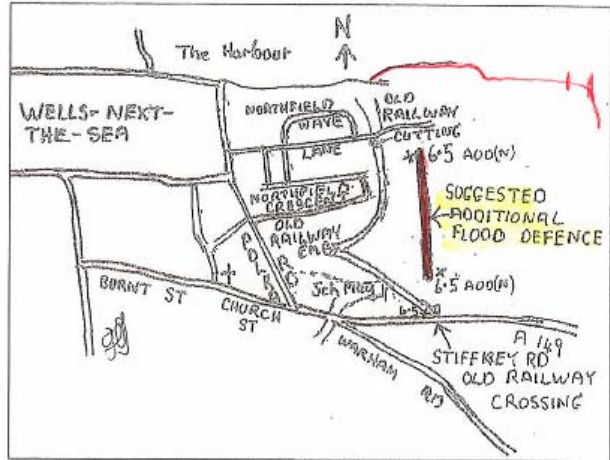 N
The Harbour
WELLS-NEXT-
THE-SEA
NORTHFIELD
WAYE
LANE
OLD
RAILWAY
CUTTING
6.5 AOD(N)
NORTHFIELD
CRESCENT
SUGGESTED
ADDITIONAL
FLOOD DEFENCE
OLD
RAILWAY
EMB
POLKA
RD
6.5 AOD(N)
BURNT ST
CHURCH
ST
Sch
WARHAM
RD
A 149
STIFFKEY RD
OLD RAILWAY
CROSSING